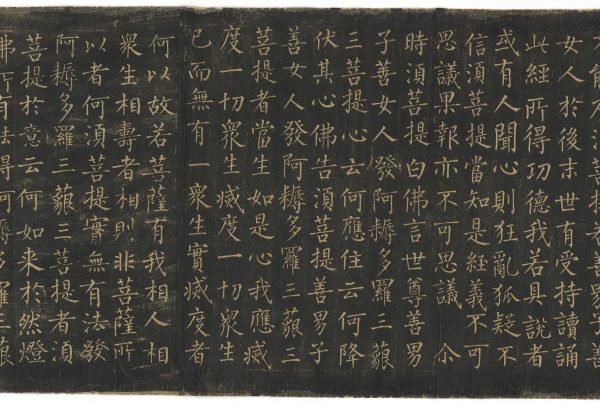 能及須菩提若善男子善
女人於後末世有受持讀誦
此經所得功德我若具說者
或有人聞心則狂亂狐疑不
信須菩提當知是經義不可
思議果報亦不可思議 尒
時須菩提白佛言世尊善男
子善女人發阿耨多羅三藐
三菩提心云何應住云何降
伏其心佛告須菩提善男子
善女人發阿耨多羅三藐三
菩提者當生如是心我應滅
度一切衆生滅度一切衆生
已而無有一衆生實滅度者
何以故若菩薩有我相人相
衆生相壽者相則非菩薩所
以者何須菩提實無有法發
阿耨多羅三藐三菩提者須
菩提於意云何如来於然燈
佛所有法得阿耨多羅三藐